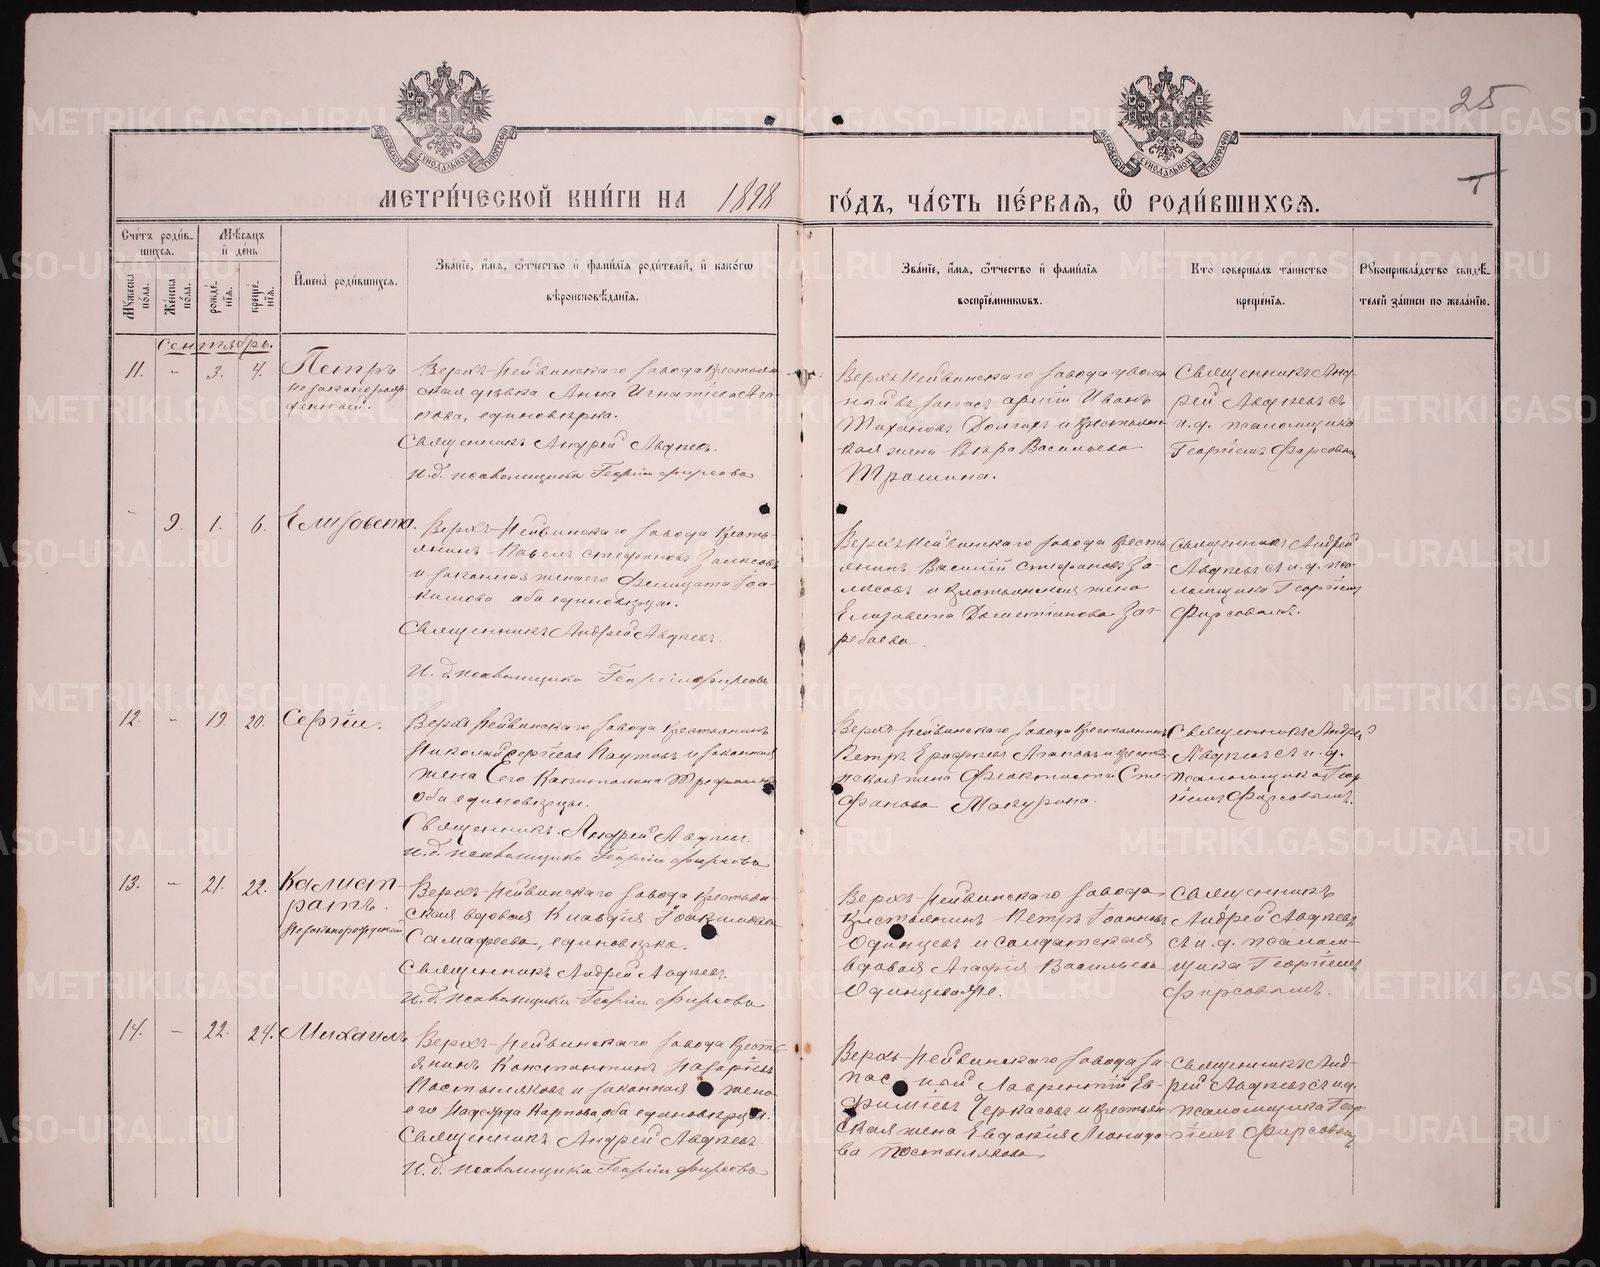 25
МОСКОВСКОЙ СѴНОДАЛЬНОЙ ТИПОГРАФІИ
МОСКОВСКОЙ СѴНОДАЛЬНОЙ ТИПОГРАФІИ
МЕТРИ́ЧЕСКОЙ КНИ́ГИ НА 1898
ГО́ДЪ, ЧА́СТЬ ПЕ́РВАѦ, Ѡ҆ РОДИ́ВШИХСѦ.
Сче́тъ роди́в-
шихсѧ.
Мꙋ́жеска по́ла.
Же́нска по́ла.
Мѣ́сѧцъ
и҆ де́нь
рожде́-
нїѧ.
креще́-
нїѧ.
И҆мена̀ роди́вшихсѧ.
Зва́нїе, и҆́мѧ, ѻ҆́тчество и҆ фами́лїѧ роди́телей, и҆ како́гѡ
вѣроисповѣ́данїѧ.
Зва́нїе, и҆́мѧ, ѻ҆́тчество и҆ фами́лїѧ
воспрїе́мникѡвъ.
Кто̀ соверша́лъ та́инство
креще́нїѧ.
Рꙋкоприкла́дство свидѣ́-
телей за́писи по жела́нїю.
Сентябрь.
11. - 3. 4. Петръ
незаконорож-
денный.
Верхъ-Нейвинскаго завода крестьян-
ская дѣвка Анна Игнатіева Ага-
пова, единовѣрка.
Священникъ Андрей Авдѣевъ.
И.д. псаломщика Георгій Фирсовъ
Верхъ-Нейвинскаго завода уволен-
ный въ запасъ арміи Иванъ
Долгихъ и крестьян-
ская жена Вѣра Васильева
Трошина.
Священникъ Анд-
рей Авдѣевъ съ
и.д. псаломщика
Георгіемъ Фирсовымъ
- 9. 1. 6. Елизавета.
Верхъ-Нейвинскаго завода кресть-
янинъ Павелъ Стефановъ
и законная жена его Фелицата Іоа-
кимова оба единовѣрцы.
Священникъ Андрей Авдѣевъ.
И.д. псаломщика Георгій Фирсовъ
Верхъ-Нейвинскаго завода кресть-
янинъ Василій Стефановъ
и крестьянская жена
Елизавета Дометіанова
Священникъ Андрей
Авдѣевъ съ и.д. пса-
ломщика Георгіемъ
Фирсовымъ.
12. - 19. 20. Сергій.
Верхъ-Нейвинскаго завода крестьянинъ
Николай Сергіевъ и законная
жена Его Капитолина
оба единовѣрцы.
Священникъ Андрей Авдѣевъ.
И.д. псаломщика Георгій Фирсовъ
Верхъ-Нейвинскаго завода крестьянинъ
Петръ Агаповъ и крестья-
нская жена Феоктиста Сте-
фанова Мокурина.
Священникъ Андрей
Авдѣевъ съ и.д.
псаломщика Геор-
гіемъ Фирсовымъ.
13. - 21. 22. Калист-
ратъ.
Незаконорожденный
Верхъ-Нейвинскаго завода крестьян-
ская вдова Клавдія Іоакимова
единовѣрка.
Священникъ Андрей Авдѣевъ.
И.д. псаломщика Георгій Фирсовъ
Верхъ-Нейвинскаго завода
крестьянинъ Петръ Іоанновъ
Одинцевъ и солдатская
вдова Агафія Васильева
Одинцева же.
Священникъ
Андрей Авдѣевъ
съ и.д. псалом-
щика Георгіемъ
Фирсовымъ.
14. - 22. 24. Михаилъ
Верхъ-Нейвинскаго завода кресть-
янинъ Константинъ Назаріевъ
Постыляковъ и законная жена
его Надежда Карпова, оба единовѣрцы.
Священникъ Андрей Авдѣевъ.
И.д. псаломщика Георгій Фирсовъ
Верхъ-Нейвинскаго завода за-
пас ный Лаврентій Ев-
фиміевъ Черкасовъ и крестьян-
ская жена Евдокія Леонидо-
ва Постылякова
Священникъ Анд-
рей Авдѣевъ съ и.д.
псаломщика Геор-
гіемъ Фирсовымъ
METRIKI.GASO-URAL.RU